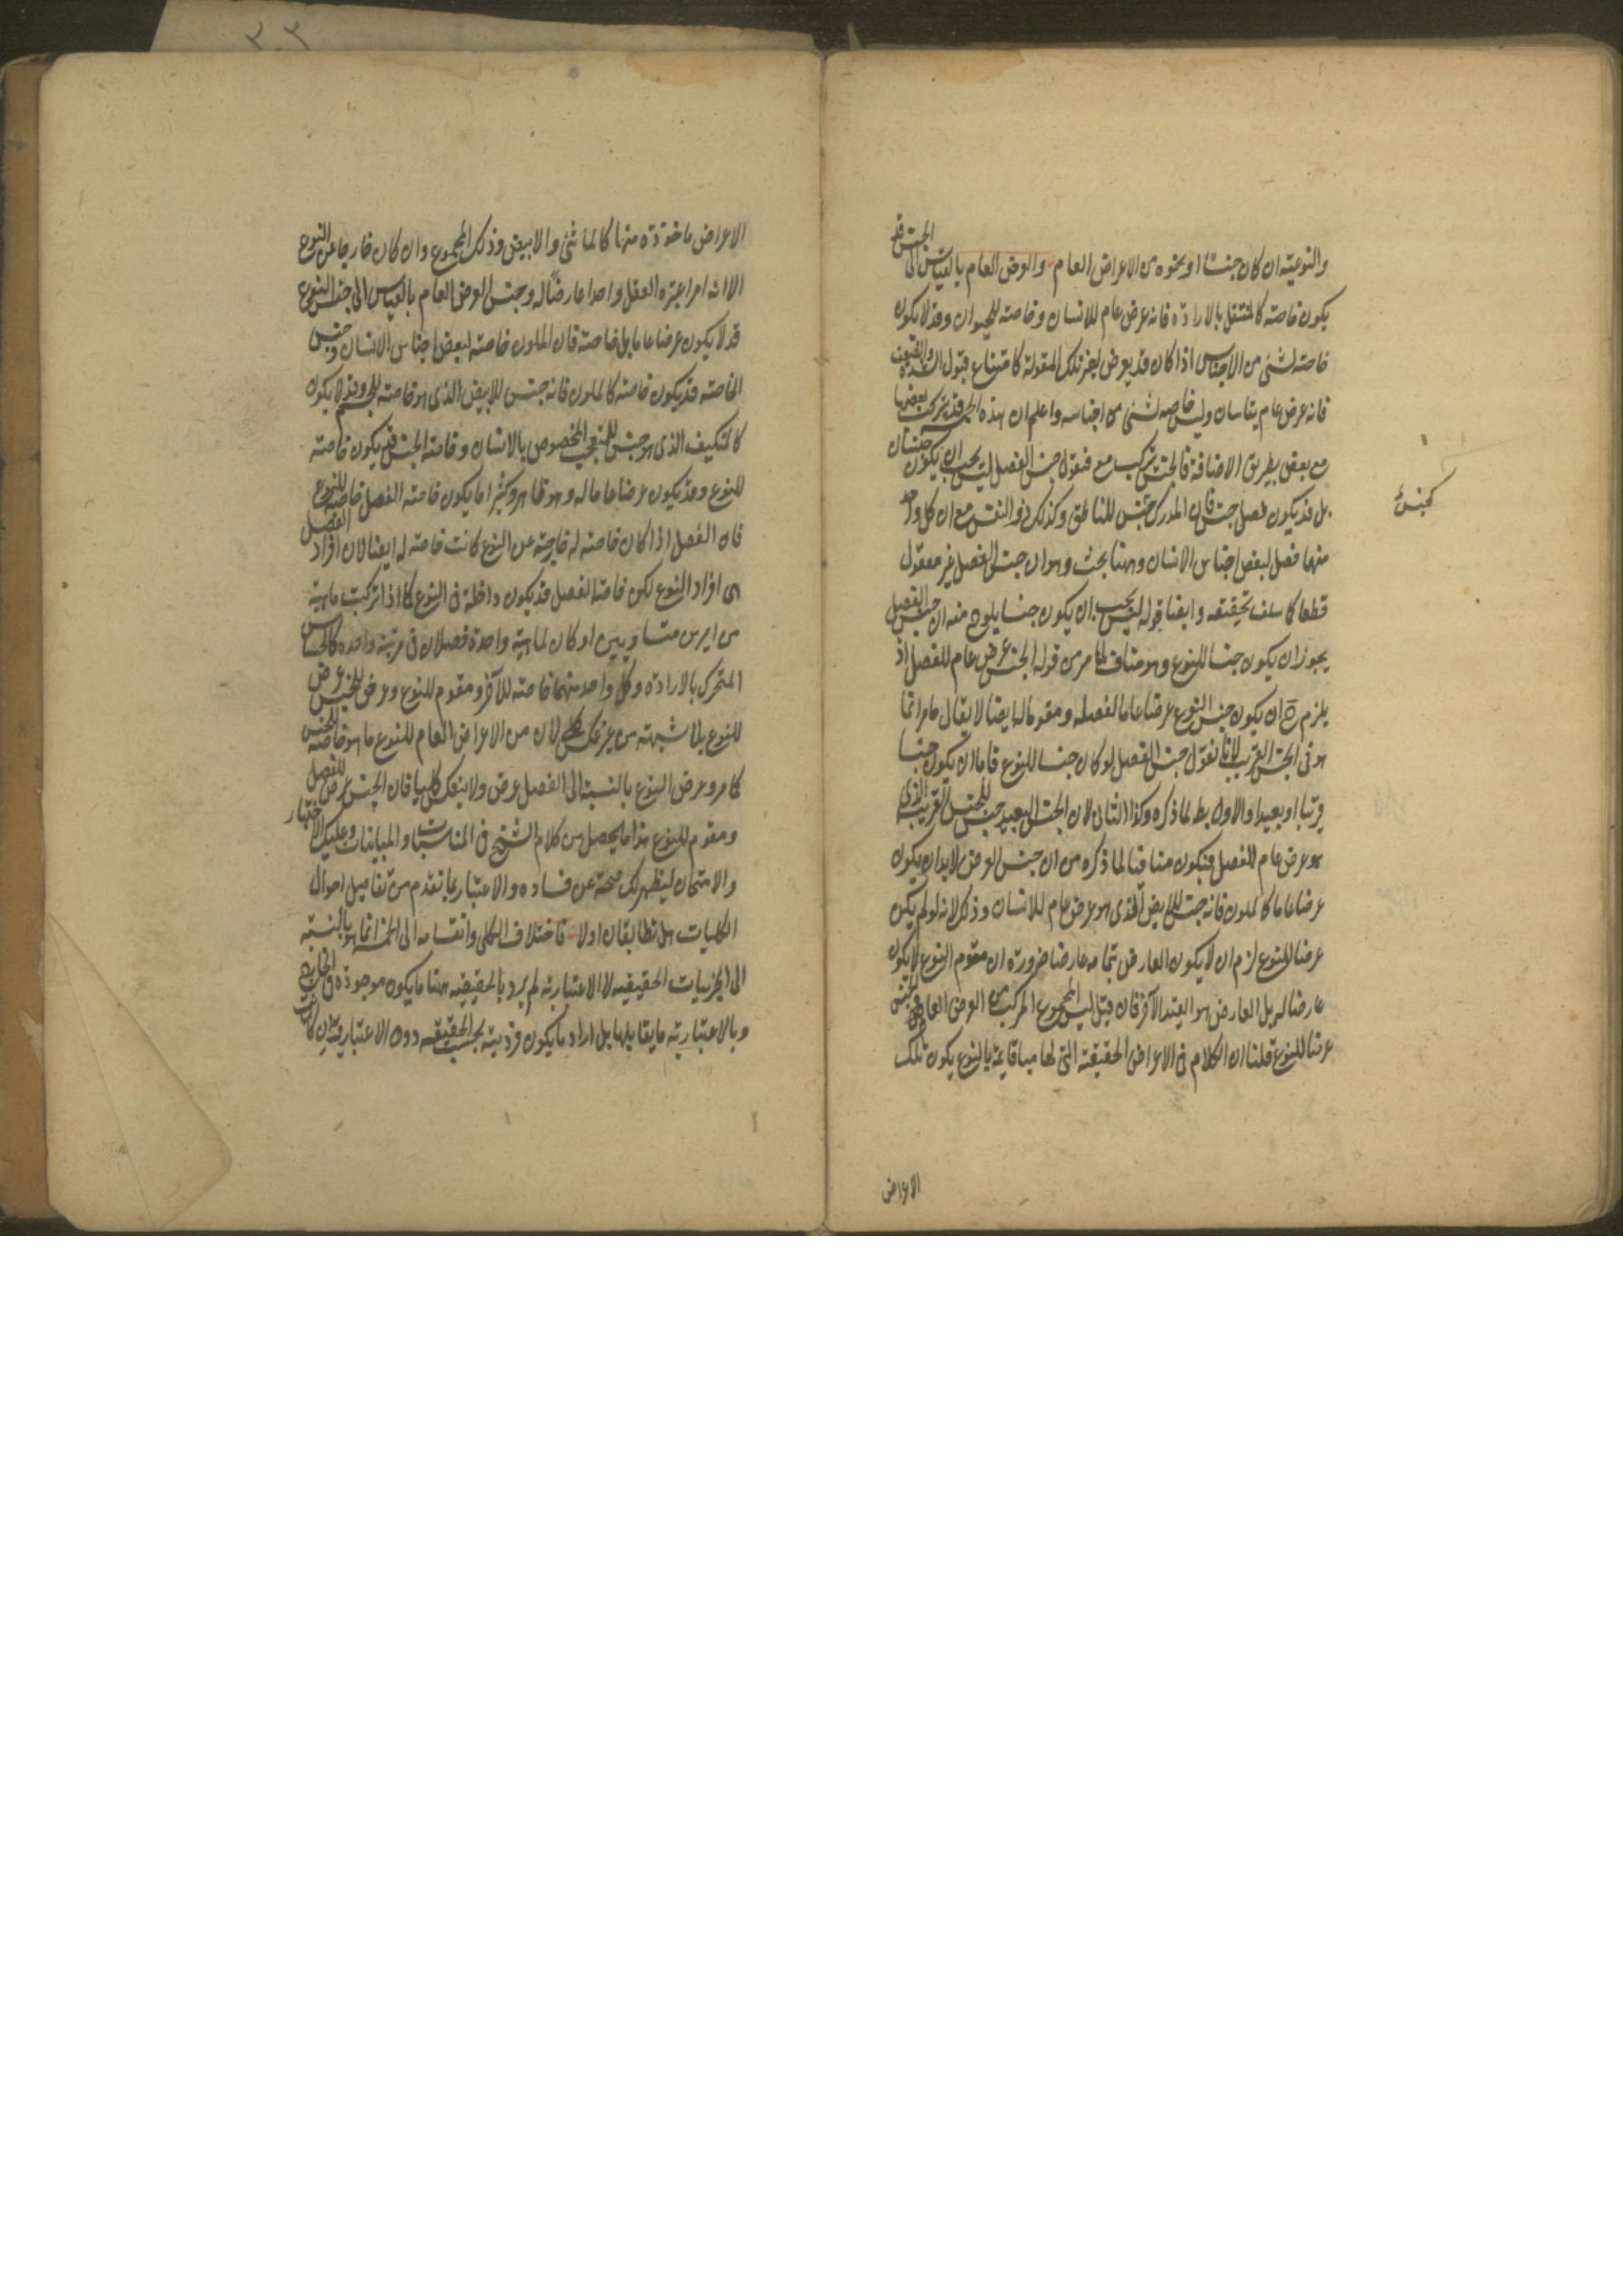 والنوعية ان كان جنسا او نحوه من الاعراض العام والعرض العام بالقياس الى الجنس قد
يكون خاصته كالمنتقل بالارادة فانه عرض عام للانسان وخاصته للحيوان وقد لا يكون
خاصته لشئ من الاجناس اذا كان قد يعرض لغير تلك المقولة كامتناع قبول الشدة والضعف
فانه عرض عام يتاسان وليس خاصه لشئ من اجناسه واعلم ان هذه الخمسة قد يتركب بعضها
مع بعض بطريق الاضافة فالجنس تركب مع فنقول جنس الفصل ليس يجب ان يكون جنسا
بل قد يكون فصل جنس فان المدرك جنس للناطق وكذلك ذو النفس مع ان كل واحد
منهما فصل لبعض اجناس الانسان وههنا بحث وهو ان جنس الفصل غير معقول
قطعا كما سلف تحقيقه وايضا قوله ليس يجب ان يكون جنسا يلوح منه ان جنس الفصل
يجوز ان يكون جنسا للنوع وهو مناف لما مر من قوله الجنس عرض عام للفصل اذ
يلزم ح ان يكون جنس النوع عرضا عاما لفصله ومقوما له ايضا لا يقال ما مر انما
هو فى الجنس القريب لانا نقول جنس الفصل لو كان جنسا للنوع فاما ان يكون جنسا
قريبا او بعيدا والاول بط لما ذكره وكذا الثانى لان الجنس البعيد جنس للجنس القريب الذى
هو عرض عام للفصل فيكون منافيا لما ذكره من ان جنس العرض لا بد ان يكون
عرضا عاما كالملون فانه جنس للابيض الذى هو عرض عام للانسان وذلك لانه لو لم يكن
عرضا للنوع لزم ان لا يكون العارض بتمامه عارضا ضرورة ان مقوم النوع لا يكون
عارضا له بل العارض هو القيد الآخر فان قيل ليس المجموع المركب من العرض العام والجنس
عرضا للنوع قلنا ان الكلام فى الاعراض الحقيقية التى لها مبا قايمة بالنوع يكون تلك
الاعراض
كجنس
الاعراض ماخوذة منها كالماشى والابيض وذلك المجموع وان كان خارجا عن النوع
الا انه امر اعتبره العقل واحدا عارضا له وجنس العرض العام بالقياس الى جنس النوع
قد لا يكون عرضا عاما بل خاصته فان الملون خاصته لبعض اجناس الانسان وجنس
الخاصته قد يكون خاصته كالملون فانه جنس للابيض الذى هو خاصته للجسم وقد لا يكون
كالتكيف الذى هو جنس للتعجب المخصوص بالانسان وخاصته الجنس قد يكون خاصته
للنوع وقد يكون عرضا عاما له وهو ظاهر وكثيرا ما يكون خاصته الفصل خاصته للنوع
فان الفصل اذا كان خاصته له خارجة عن النوع كانت خاصته له ايضا لان افراد الفصل
هى افراد النوع لكن خاصته الفصل قد يكون داخلة فى النوع كما اذا تركبت ماهية
من امرين متساويين او كان لماهية واحدة فصلان فى مرتبة واحدة كالحساس
المتحرك بالارادة وكل واحد منهما خاصته للآخر ومقوم للنوع وعرض الجنس عرض
للنوع بلا شبهته من غير عكس كلى لان من الاعراض العام للنوع ما هو خاصته للجنس
كما مر وعرض النوع بالنسبة الى الفصل عرض ولا ينعكس كليا فان الجنس عرض للفصل
ومقوم للنوع هذا ما يحصل من كلام الشيخ فى المناسبات والمباينات وعليك الاختبار
والامتحان ليظهر لك صحته عن فساده والاعتبار بما تقدم من تفاصيل احوال
الكليات هل تطابقان اولا فاختلاف الكلى وانقسامه الى الخمسة انما هو بالنسبة
الى الجزئيات الحقيقيه لا الاعتبارية لم يرد بالحقيقية ههنا ما يكون موجودة فى الخارج
وبالاعتبارية ما يقابلها بل اراد ما يكون فرديته بحسب الحقيقه دون الاعتبار